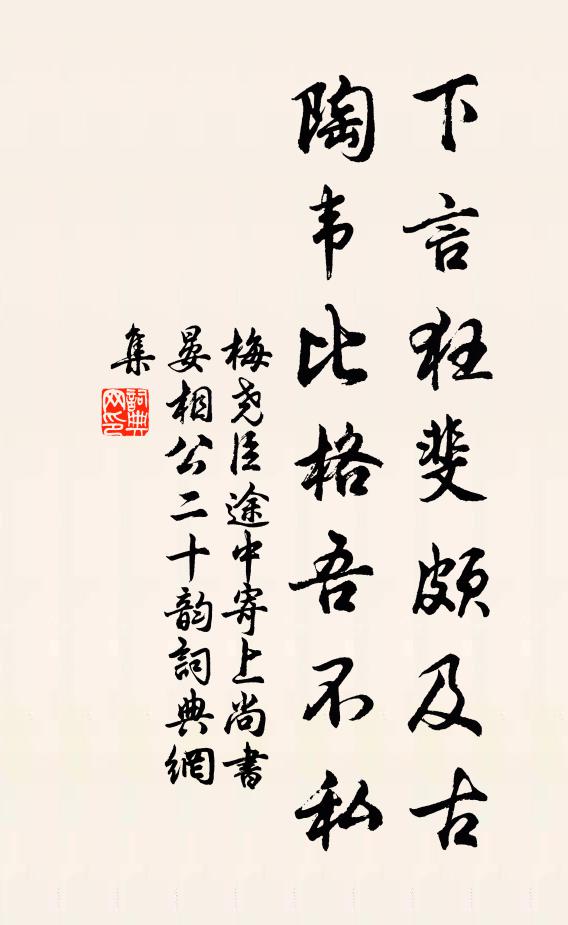 下言狂斐颇及古
陶韦比格吾不私
梅尧臣途中寄上尚书
晏相公二十韵詞典網
集
詞典
网印